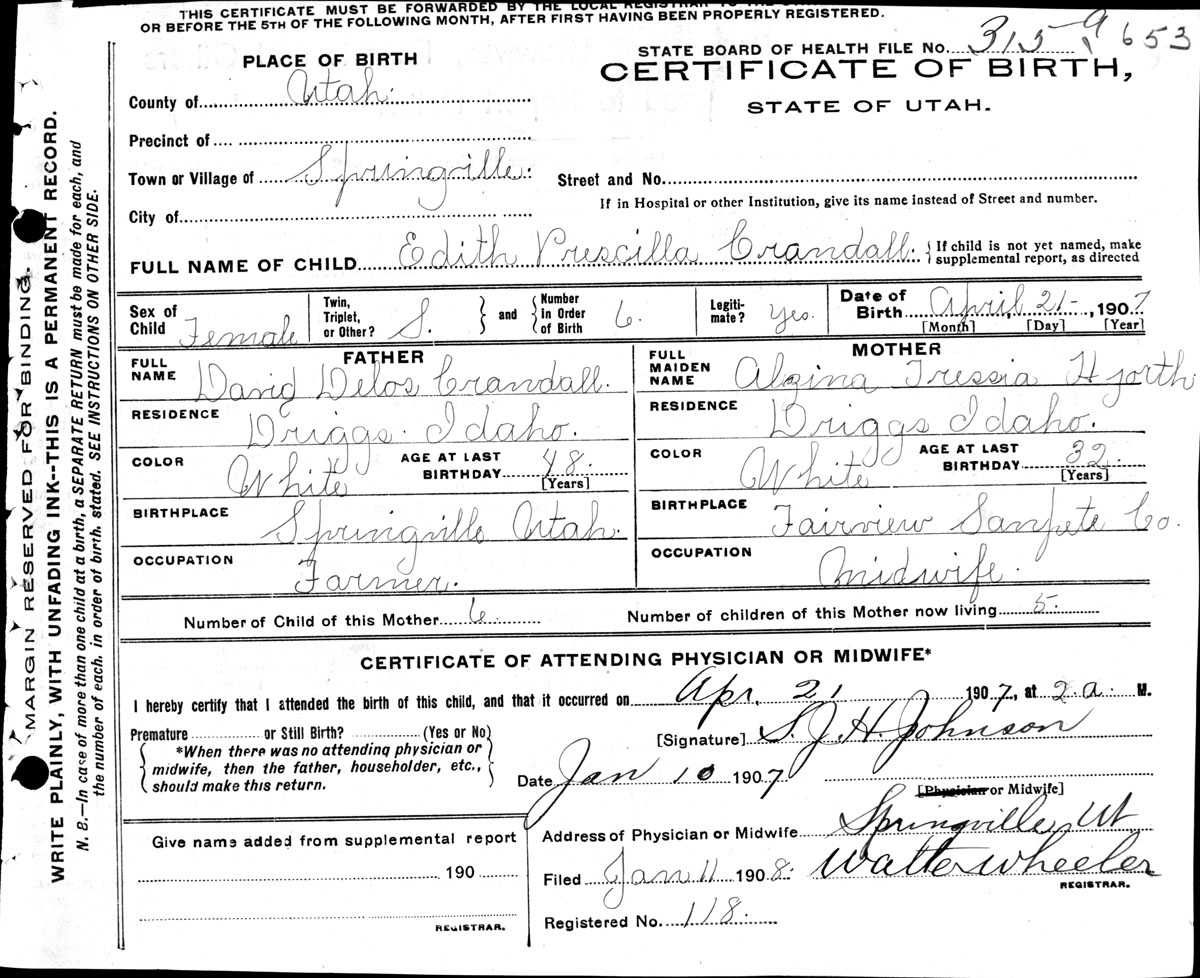 THIS CERTIFICATE MUST BE FORWARDED BY THE LOCAL REGISTRAR TO THE
OR BEFORE THE 5TH OF THE FOLLOWING MONTH, AFTER FIRST HAVING BEEN PROPERLY REGISTERED.
STATE BOARD OF HEALTH FILE NO. 315-9 653
CERTIFICATE OF BIRTH,
STATE OF UTAH.
PLACE OF BIRTH
County of Utah.
Precinct of
Town or Village of Springville.
Street and No.
If in Hospital or other Institution, give its name instead of Street and number.
City of
FULL NAME OF CHILD Edith Prescilla Crandall. { If child is not yet named, make
supplemental report, as directed
Sex of Child Female
Twin, Triplet, or Other? S. } and { Number in Order of Birth 6.
Legiti-mate? Yes.
Date of Birth April, 21-, 1907
[Month] [Day] [Year]
FATHER
FULL NAME David Delos Crandall.
RESIDENCE Driggs Idaho.
COLOR White
AGE AT LAST BIRTHDAY 48. [Years]
BIRTHPLACE Springville Utah.
OCCUPATION Farmer.
MOTHER
FULL MAIDEN NAME Alzina Tressia Hjorth
RESIDENCE Driggs Idaho.
COLOR White
AGE AT LAST BIRTHDAY 32. [Years]
BIRTHPLACE Fairview Sanpete Co.
OCCUPATION Midwife.
Number of Child of this Mother 6.
Number of children of this Mother now living 5.
CERTIFICATE OF ATTENDING PHYSICIAN OR MIDWIFE*
I hereby certify that I attended the birth of this child, and that it occurred on Apr. 21 1907, at 2 a. M.
Premature or Still Birth? (Yes or No)
{ *When there was no attending physician or
midwife, then the father, householder, etc.,
should make this return. }
[Signature] S. J. H. Johnson
Date Jan 10 1907
[Physician or Midwife]
Give name added from supplemental report
190
REGISTRAR.
Address of Physician or Midwife Springville Ut
Filed Jan 11 1908. Walter Wheeler
REGISTRAR.
Registered No. 118.
MARGIN RESERVED FOR BINDING.
WRITE PLAINLY, WITH UNFADING INK--THIS IS A PERMANENT RECORD.
N. B.—In case of more than one child at a birth, a SEPARATE RETURN must be made for each, and
the number of each, in order of birth, stated. SEE INSTRUCTIONS ON OTHER SIDE.